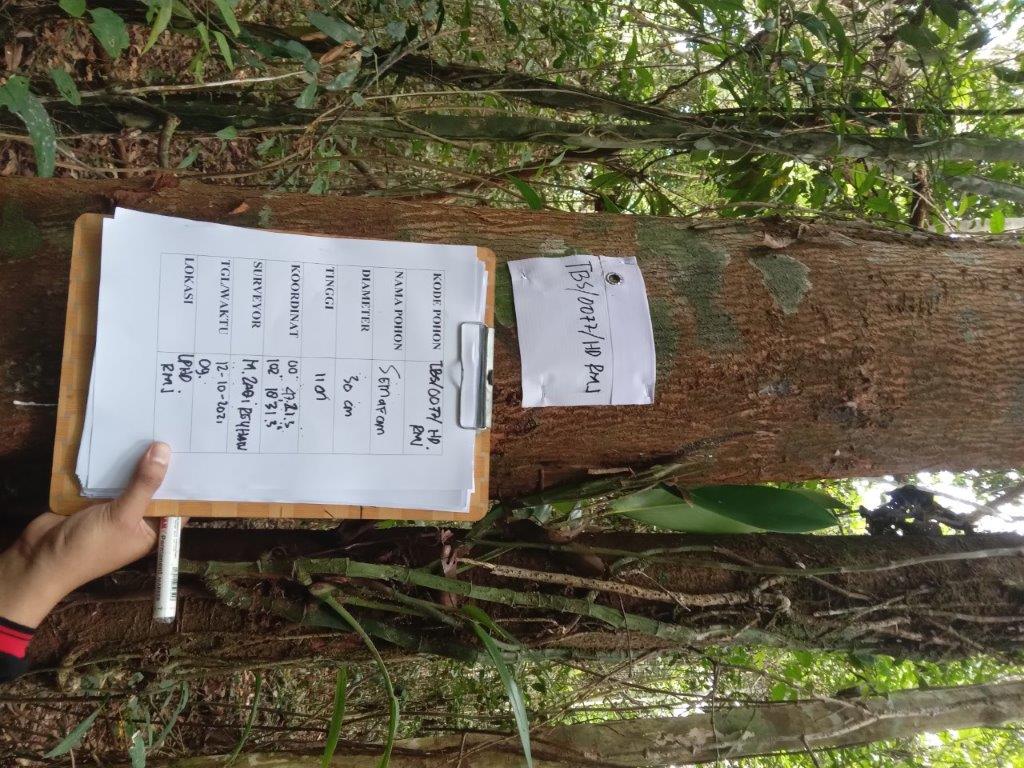 TBS/0077/HD RMJ
KODE POHON TBS/0077/ HD. RMJ
NAMA POHON Semafam
DIAMETER 30 cm
TINGGI 11 m
KOORDINAT 00° 47.21.3
102° 18 31.3"
SURVEYOR M. ZAGI REYHAN
TGL/WAKTU 12-10-2021
09.
LOKASI LPHD
RMJ
Permanent MARKER